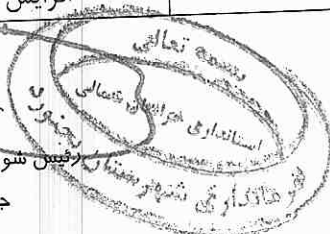 افزایش
بسمه تعالی
استانداری خراسان شمالی
فرمانداری شهرستان بجنورد
رئیس شو
ج